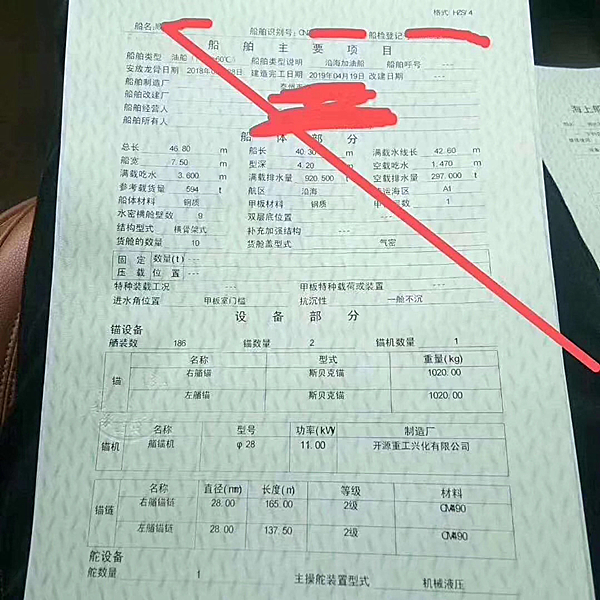 格式: HZS/4
船名:
船舶识别号: CN
船检登记号
船舶主要项目
船舶类型 油船 60℃) 船舶类型说明 沿海加油船 船舶呼号 ---
安放龙骨日期 2018年 月 8日 建造完工日期 2019年04月19日 改建日期 ---
船舶制造厂
船舶改建厂
船舶经营人
船舶所有人
船体部分
总长 46.80 m 船长 40.30 m 满载水线长 42.60 m
船宽 7.50 m 型深 4.20 m 空载吃水 1.470 m
满载吃水 3.600 m 满载排水量 920.500 t 空载排水量 297.000 t
参考载货量 594 t 航区 沿海 航海区 A1
船体材料 钢质 甲板材料 钢质 甲 层数 1
水密横舱壁数 9 双层底位置 ---
结构型式 横骨架式 补充加强结构 ---
货舱的数量 10 货舱盖型式 气密
固定 数量(t) ---
压载 位置 ---
特种装载工况 --- 甲板特种载荷或装置 ---
进水角位置 甲板室门槛 抗沉性 一舱不沉
设备部分
锚设备
舾装数 186 锚数量 2 锚机数量 1
锚 名称 型式 重量(kg)
右艏锚 斯贝克锚 1020.00
左艏锚 斯贝克锚 1020.00
锚机 名称 型号 功率(kW) 制造厂
艏锚机 φ28 11.00 开源重工兴化有限公司
锚链 名称 直径(mm) 长度(m) 等级 材料
右艏锚链 28.00 165.00 2级 CM490
左艏锚链 28.00 137.50 2级 CM490
舵设备
舵数量 1 主操舵装置型式 机械液压
海上